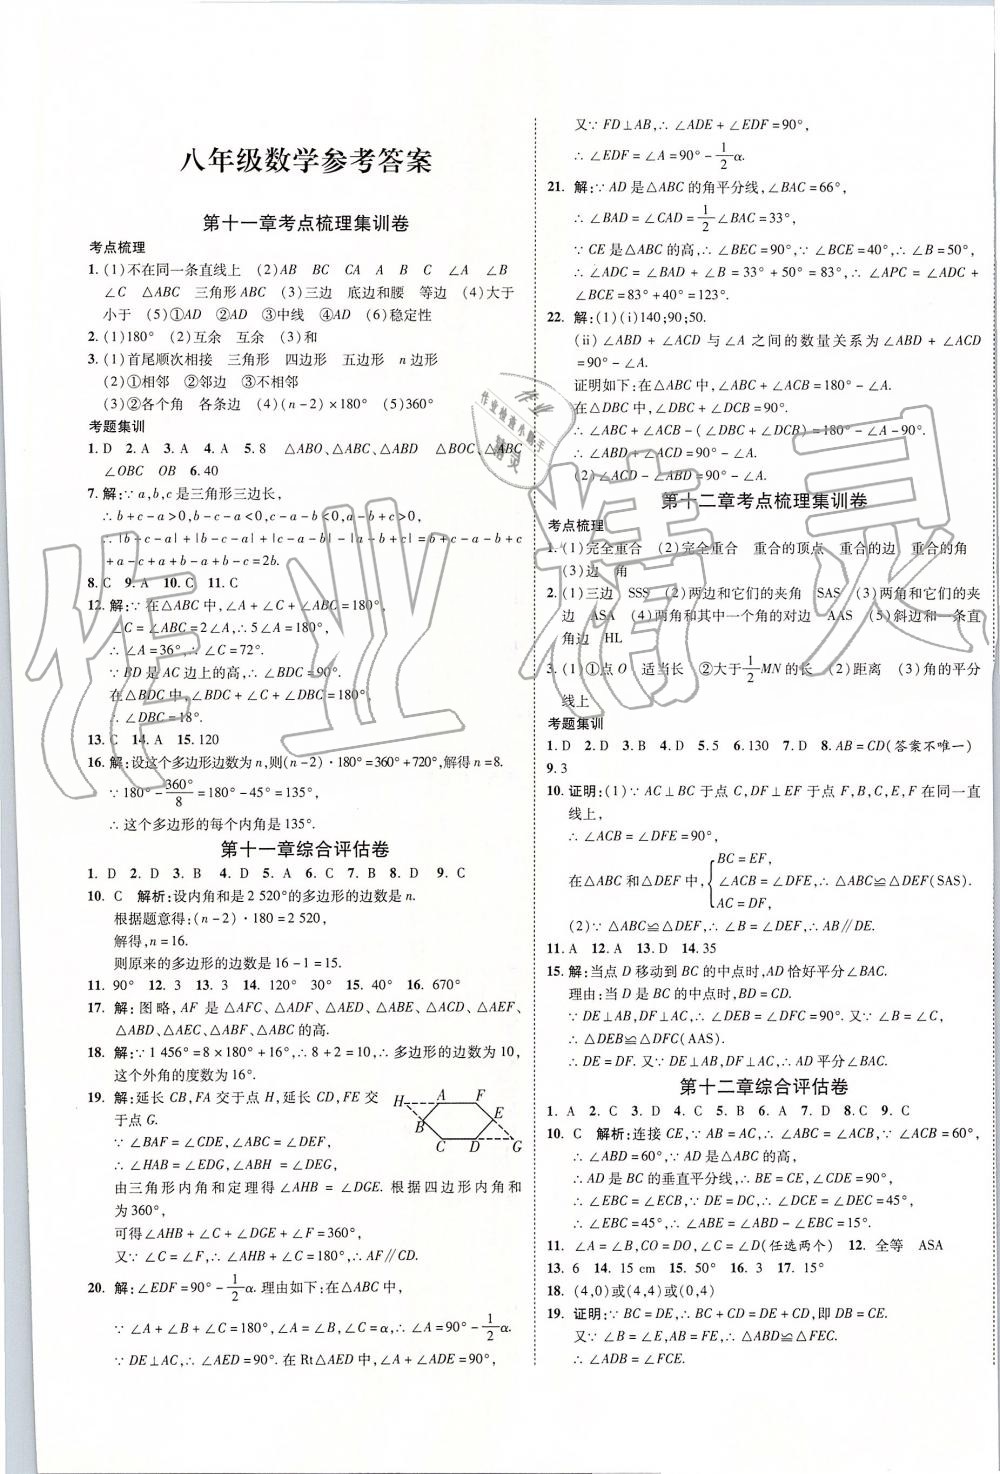 八年级数学参考答案
第十一章考点梳理集训卷
考点梳理
1. (1)不在同一条直线上 (2)AB BC CA A B C ∠A ∠B
∠C △ABC 三角形ABC (3)三边 底边和腰 等边 (4)大于
小于 (5)①AD ②AD ③中线 ④AD (6)稳定性
2. (1)180° (2)互余 互余 (3)和
3. (1)首尾顺次相接 三角形 四边形 五边形 n边形
(2)①相邻 ②邻边 ③不相邻
(3)②各个角 各条边 (4)(n-2)×180° (5)360°
考题集训
1. D 2. A 3. A 4. A 5. 8 △ABO、△ABC、△ABD △BOC、△ABC
∠OBC OB 6. 40
7. 解:∵a,b,c是三角形三边长,
∴b+c-a>0,b-c-a<0,c-a-b<0,
∴|b+c-a|+|b-c-a|+|c-a-b|-|a-b+c|=b+c-a-b+c
+a-c+a+b-a+b-c=2b.
8. C 9. A 10. C 11. C
12. 解:∵在△ABC中,∠A+∠C+∠ABC=180°,
∠C=∠ABC=2∠A,∴5∠A=180°,
∴∠A=36°,∴∠C=72°.
∵BD是AC边上的高,∴∠BDC=90°.
在△BDC中,∠BDC+∠C+∠DBC=180°,
∴∠DBC=18°.
13. C 14. A 15. 120
16. 解:设这个多边形边数为n,则(n-2)·180°=360°+720°,解得n=8.
∵180°-360°/8=180°-45°=135°,
∴这个多边形的每个内角是135°.
第十一章综合评估卷
1. D 2. D 3. B 4. D 5. A 6. C 7. B 8. D 9. C
10. C 解析:设内角和是2 520°的多边形的边数是n.
根据题意得:(n-2)·180=2 520,
解得,n=16.
则原来的多边形的边数是16-1=15.
11. 90° 12. 3 13. 3 14. 120° 30° 15. 40° 16. 670°
17. 解:图略,AF 是△AFC、△ADF、△AED、△ABE、△ACD、△AEF、
△ABD、△AEC、△ABF、△ABC的高.
18. 解:∵1 456°=8×180°+16°,∴8+2=10,∴多边形的边数为10,
这个外角的度数为16°.
19. 解:延长CB,FA交于点H,延长CD,FE交
于点G.
∵∠BAF=∠CDE,∠ABC=∠DEF,
∴∠HAB=∠EDG,∠ABH=∠DEG,
由三角形内角和定理得∠AHB=∠DGE. 根据四边形内角和
为360°,
可得∠AHB+∠C+∠DGE+∠F=360°,
又∵∠C=∠F,∴∠AHB+∠C=180°,∴AF∥CD.
H A F
B E
C D G
20. 解:∠EDF=90°-1/2α.理由如下:在△ABC中,
∵∠A+∠B+∠C=180°,∠B=∠C=α,∴∠A=90°-1/2α.
∵DE⊥AC,∴∠AED=90°. 在Rt△AED中,∠A+∠ADE=90°,
又∵FD⊥AB,∴∠ADE+∠EDF=90°,
∴∠EDF=∠A=90°-1/2α.
21. 解:∵AD是△ABC的角平分线,∠BAC=66°,
∴∠BAD=∠CAD=1/2∠BAC=33°,
∵CE是△ABC的高,∴∠BEC=90°,∵∠BCE=40°,∴∠B=50°,
∴∠ADC=∠BAD+∠B=33°+50°=83°,∴∠APC=∠ADC+
∠BCE=83°+40°=123°.
22. 解:(1)(i)140;90;50.
(ii)∠ABD+∠ACD与∠A之间的数量关系为∠ABD+∠ACD
=90°-∠A.
证明如下:在△ABC中,∠ABC+∠ACB=180°-∠A.
在△DBC中,∠DBC+∠DCB=90°.
∴∠ABC+∠ACB-(∠DBC+∠DCB)=180°-∠A-90°.
∴∠ABD+∠ACD=90°-∠A.
(2)∠ACD-∠ABD=90°-∠A.
第十二章考点梳理集训卷
考点梳理
1. (1)完全重合 (2)完全重合 重合的顶点 重合的边 重合的角
(3)边 角
2. (1)三边 SSS (2)两边和它们的夹角 SAS (3)两角和它们的夹
边 ASA (4)两角和其中一个角的对边 AAS (5)斜边和一条直
角边 HL
3. (1)①点O 适当长 ②大于1/2MN的长 (2)距离 (3)角的平分
线上
考题集训
1. D 2. D 3. B 4. D 5. 5 6. 130 7. D 8. AB=CD(答案不唯一)
9. 3
10. 证明:(1)∵AC⊥BC于点C,DF⊥EF于点F,B,C,E,F在同一直
线上,
∴∠ACB=∠DFE=90°,
在△ABC和△DEF中,{BC=EF, ∠ACB=∠DFE, AC=DF, ∴△ABC≌△DEF(SAS).
(2)∵△ABC≌△DEF,∴∠B=∠DEF,∴AB∥DE.
11. A 12. A 13. D 14. 35
15. 解:当点D移动到BC的中点时,AD恰好平分∠BAC.
理由:当D是BC的中点时,BD=CD.
∵DE⊥AB,DF⊥AC,∴∠DEB=∠DFC=90°. 又∵∠B=∠C,
∴△DEB≌△DFC(AAS).
∴DE=DF. 又∵DE⊥AB,DF⊥AC,∴AD平分∠BAC.
第十二章综合评估卷
1. A 2. C 3. D 4. C 5. C 6. A 7. D 8. C 9. C
10. C 解析:连接CE,∵AB=AC,∴∠ABC=∠ACB,∵∠ACB=60°,
∴∠ABD=60°,∵AD是△ABC的高,
∴AD是BC的垂直平分线,∴BE=CE,∠ADC=90°,
∴∠EBC=∠ECB,∵DE=DC,∴∠DCE=∠DEC=45°,
∴∠EBC=45°,∴∠ABE=∠ABD-∠EBC=15°.
11. ∠A=∠B,CO=DO,∠C=∠D(任选两个) 12. 全等 ASA
13. 6 14. 15 cm 15. 50° 16. 3 17. 15°
18. (4,0)或(4,4)或(0,4)
19. 证明:∵BC=DE,∴BC+CD=DE+CD,即DB=CE.
又∵∠B=∠E,AB=FE,∴△ABD≌△FEC.
∴∠ADB=∠FCE.
作业精灵
作业检查小助手